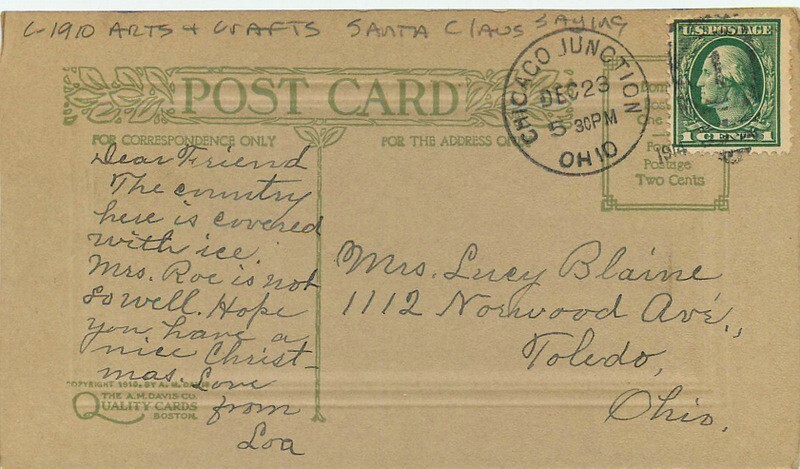 C-1910 ARTS + CRAFTS SANTA CLAUS SAYING
POST CARD
FOR CORRESPONDENCE ONLY
FOR THE ADDRESS ONLY
CHICAGO JUNCTION
DEC 23
5 30PM
OHIO
1914
U.S. POSTAGE
1 CENT 1
One
For
Postage
Two Cents
Dear Friend
The country
here is covered
with ice.
Mrs. Roe is not
so well. Hope
you have a
nice Christ-
mas. Love
from
Loa
Mrs. Lucy Blaine
1112 Norwood Ave.,
Toledo,
Ohio.
COPYRIGHT 1910, BY A. M. DAVIS
THE A.M. DAVIS CO.
QUALITY CARDS
BOSTON.